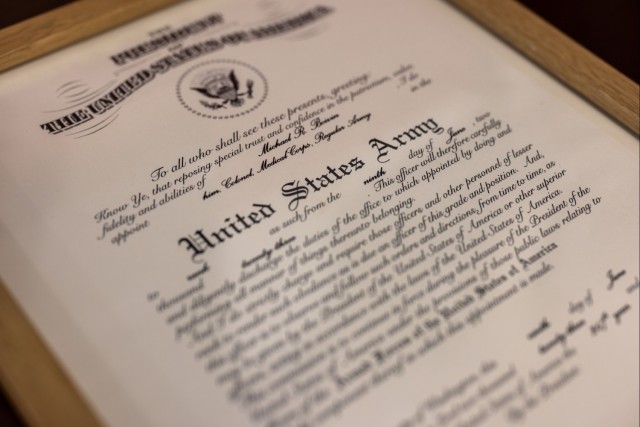 THE
PRESIDENT
OF
THE UNITED STATES OF AMERICA
To all who shall see these presents, greeting:
Know Ye, that reposing special trust and confidence in the patriotism, valor,
fidelity and abilities of Michael R. , I do
appoint him, Colonel, Medical Corps, Regular Army in the
United States Army
as such from the ninth day of June, two
thousand and twenty three This officer will therefore carefully
and diligently discharge the duties of the office to which appointed by doing and
performing all manner of things thereunto belonging.
And I do strictly charge and require those officers and other personnel of lesser
rank to render such obedience as is due an officer of this grade and position. And,
this officer is to observe and follow such orders and directions, from time to time, as
may be given by the President of the United States of America or other superior
officers, acting in accordance with the laws of the United States of America.
This commission is to continue in force during the pleasure of the President of the
United States of America under the provisions of those public laws relating to
officers of the Armed Forces of the United States of America
and the component thereof in which this appointment is made.
ninth day of June
twenty three